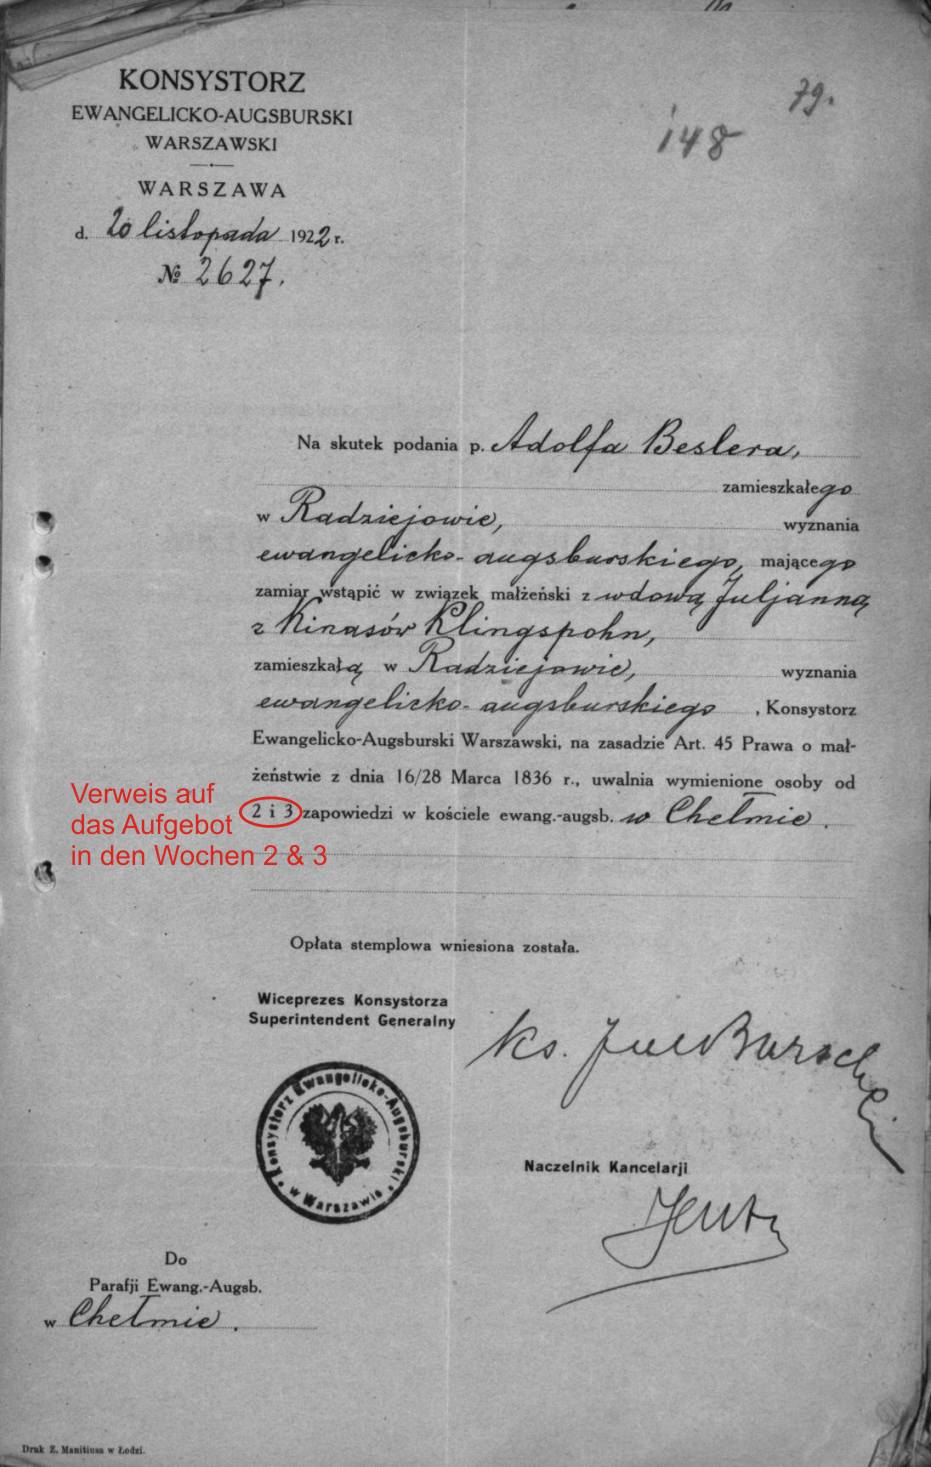 79.
148
KONSYSTORZ
EWANGELICKO-AUGSBURSKI
WARSZAWSKI
WARSZAWA
d. 20 listopada 1922 r.
№ 2627.
Na skutek podania p. Adolfa Beslera,
zamieszkałego
w Radziejowie, wyznania
ewangelicko-augsburskiego, mającego
zamiar wstąpić w związek małżeński z wdową Juljanną
z Kinasów Klingspohn,
zamieszkałą w Radziejowie, wyznania
ewangelicko-augsburskiego, Konsystorz
Ewangelicko-Augsburski Warszawski, na zasadzie Art. 45 Prawa o mał-
żeństwie z dnia 16/28 Marca 1836 r., uwalnia wymienione osoby od
2 i 3 zapowiedzi w kościele ewang.-augsb. w Chełmie.
Verweis auf
das Aufgebot
in den Wochen 2 & 3
Opłata stemplowa wniesiona została.
Wiceprezes Konsystorza
Superintendent Generalny
ks. Jul Bursche
Konsystorz Ewangelicko-Augsburski
w Warszawie
Naczelnik Kancelarji
Do
Parafji Ewang.-Augsb.
w Chełmie.
Druk Z. Manitiusa w Łodzi.